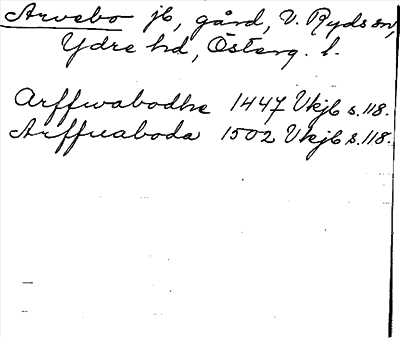 Arvebo jb, gård, V. Ryds sn,
Ydre hd, Österg. l.
Arffwabodhe 1447 Vkjb s. 118.
Arffuaboda 1502 Vkjb s. 118.